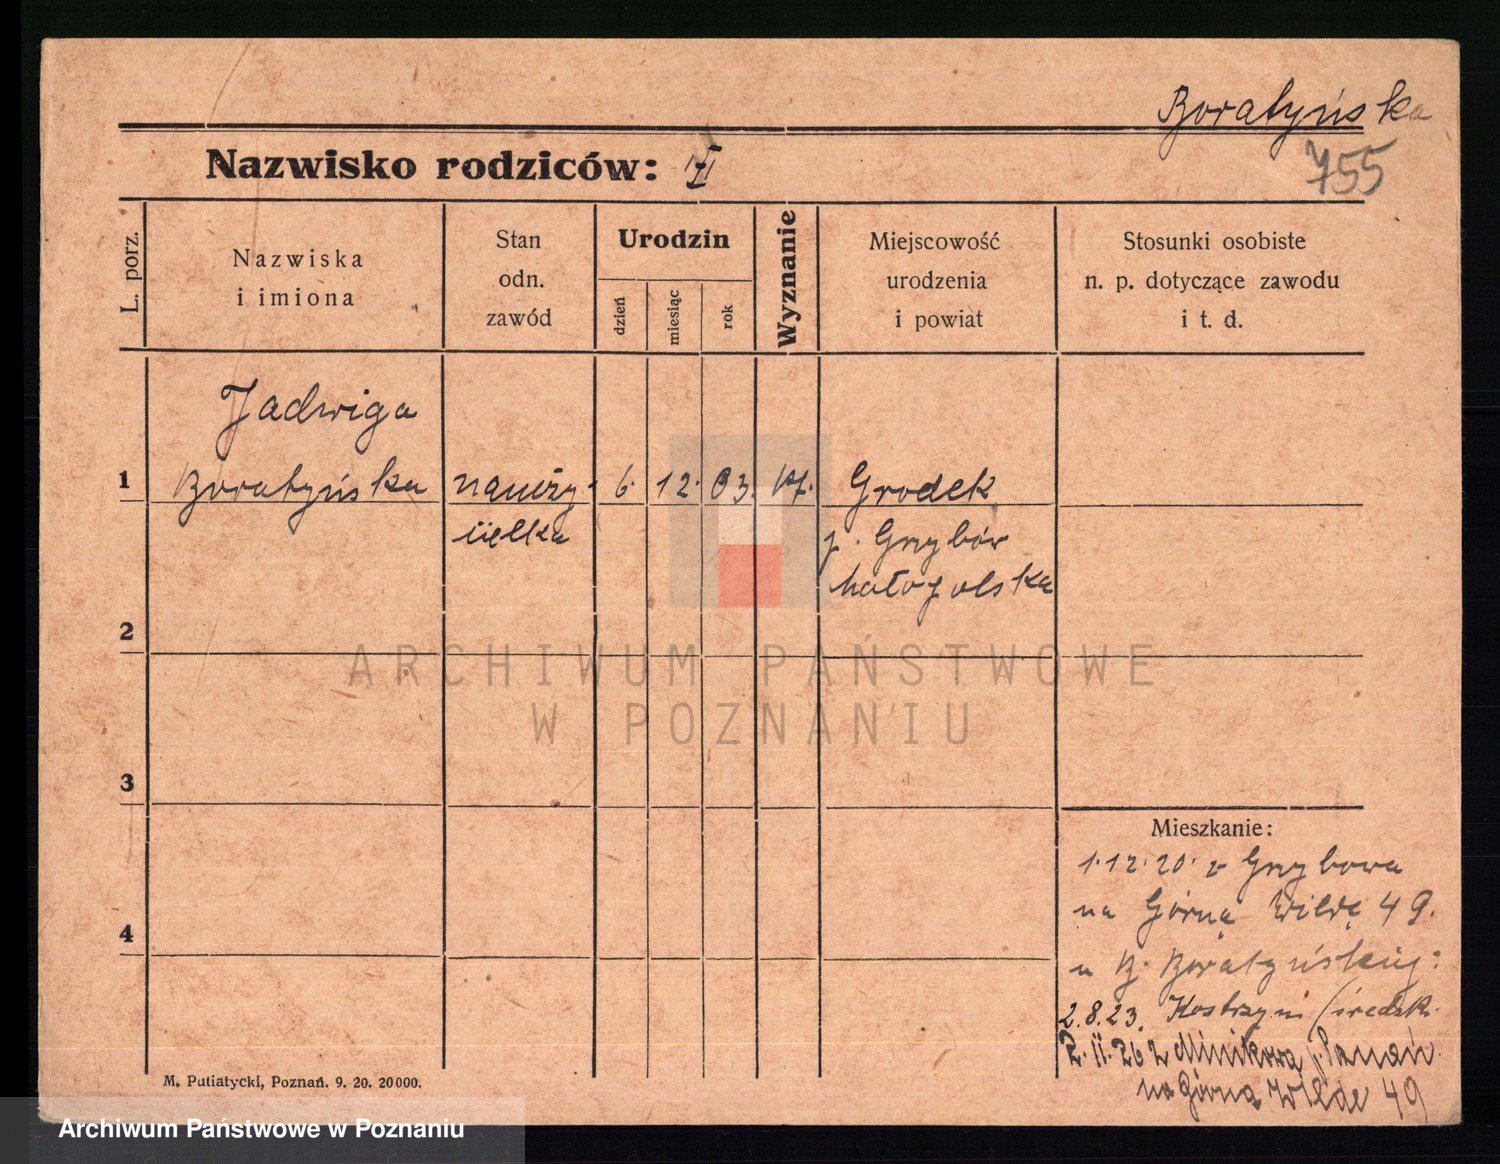 Boratyńska
755
Nazwisko rodziców:
L. porz.
Nazwiska
i imiona
Stan
odn.
zawód
Urodzin
dzień
miesiąc
rok
Wyznanie
Miejscowość
urodzenia
i powiat
Stosunki osobiste
n. p. dotyczące zawodu
i t. d.
Jadwiga
1 Boratyńska nauczy- 6. 12. 03. kt. Grodek
cielka p. Grybów
Małopolska
2
3
4
ARCHIWUM PAŃSTWOWE
W POZNANIU
Mieszkanie:
1.12.20. z Grybowa
na Górną Wildę 49.
u B. Boratyńskiej.
2.8.23. Kostrzyn (średzk.
2.11.26 z Minikowa p. Poznań
na Górną Wilde 49
M. Putiatycki, Poznań. 9. 20. 20000.
Archiwum Państwowe w Poznaniu